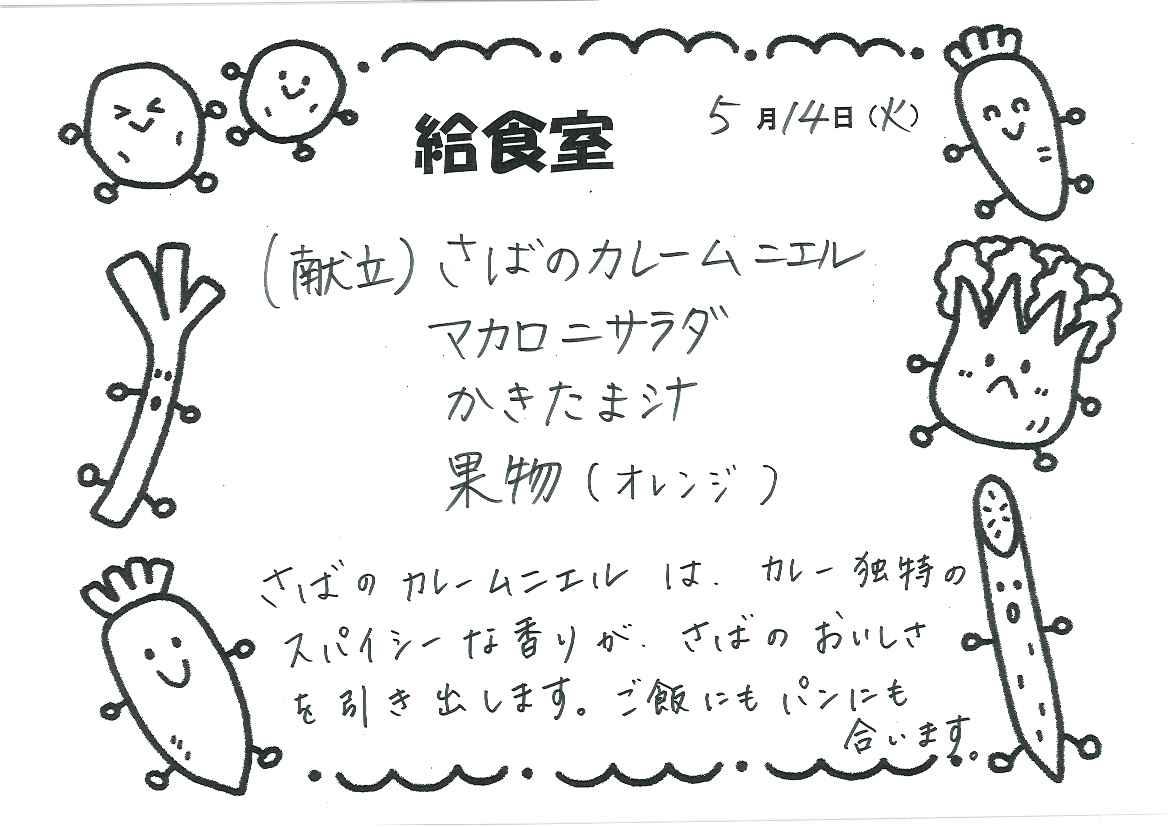 給食室
5月14日(火)
(献立)さばのカレームニエル
マカロニサラダ
かきたま汁
果物(オレンジ)
さばのカレームニエルは、カレー独特の
スパイシーな香りが、さばのおいしさ
を引き出します。ご飯にもパンにも
合います。